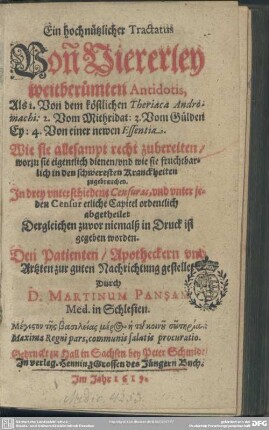 Ein hochnützlicher Tractatus
Von Viererley
weitberümten Antidotis,
Als 1. Von dem köstlichen Theriaca Andro-
machi: 2. Vom Mithridat: 3. Vom Gülden
Ey: 4. Von einer newen Essentia.
Wie sie allesampt recht zubereiten/
worzu sie eigentlich dienen/vnd wie sie fruchtbar-
lich in den schweresten Kranckheiten
zugebrauchen.
In drey vnterschiedene Censuras, vnd vnter je-
den Censur etliche Capitel ordentlich
abgetheilet
Dergleichen zuvor niemalß in Druck ist
gegeben worden.
Den Patienten/ Apotheckern vnd
Artzten zur guten Nachrichtung gestellet
Durch
D. MARTINUM PANSAM
Med. in Schlesien.
Μέγιστον τῆς βασιλείας μέρος ἡ τοῦ κοινῆ
Maxima Regni pars, communis salutis procuratio.
Gedruckt zu Hall in Sachsen bey Peter Schmidt/
In verleg. Henning Grossen des Jüngern Buch.
Im Jahr